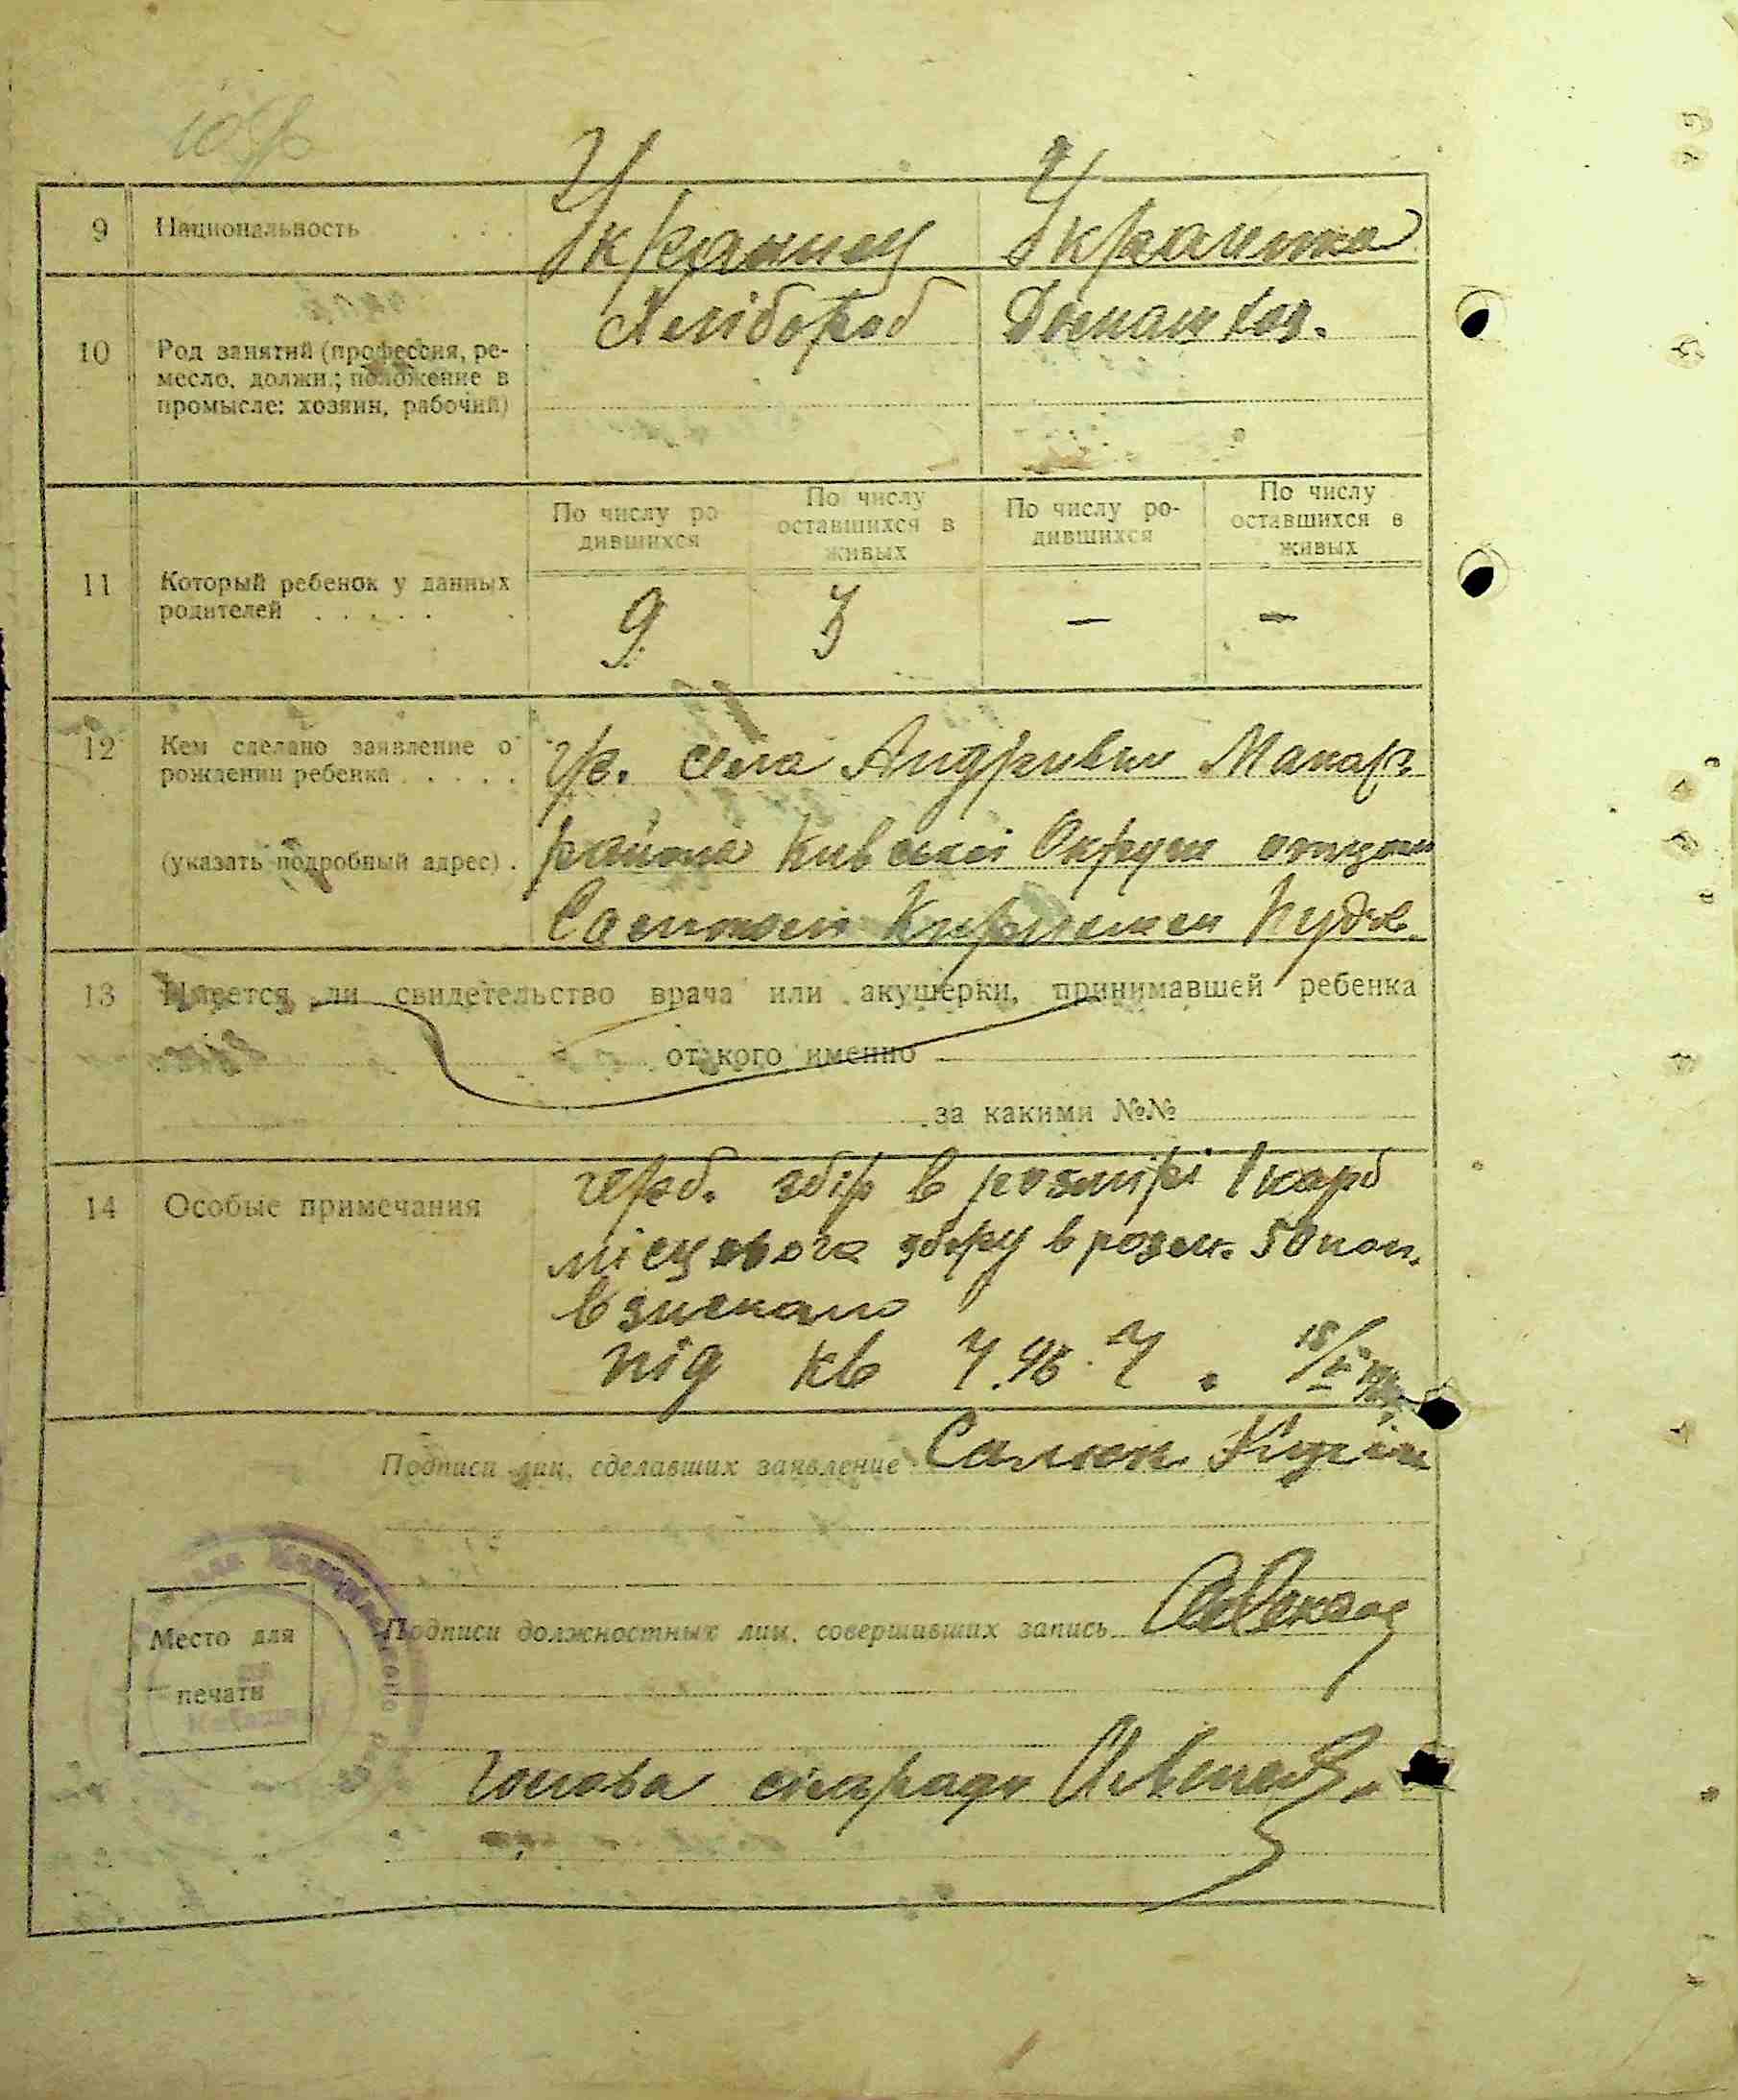 9 Национальность . . . Украинец Украинка
10 Род занятий (профессия, ре-
месло, должн.; положение в
промысле: хозяин, рабочий)
Хлібороб Домашхоз.
11 Который ребенок у данных
родителей . . . . .
По числу ро
дившихся
По числу
оставшихся в
живых
По числу ро-
дившихся
По числу
оставшихся в
живых
9 — —
12 Кем сделано заявление о
рождении ребенка . . . . .
(указать подробный адрес) .
гр. села Андрівки Макар.
района Київської Округи
Кирилом
13 Имеется ли свидетельство врача или акушерки, принимавшей ребенка
от кого именно
за какими №№
14 Особые примечания
герб. збір в розмірі 1 карб
місцевого збору в розм. 50 коп.
взискано
під кв
Подписи лиц, сделавших заявление Салюк
Подписи должностных лиц, совершивших запись
Место для
печати
Голова сільради